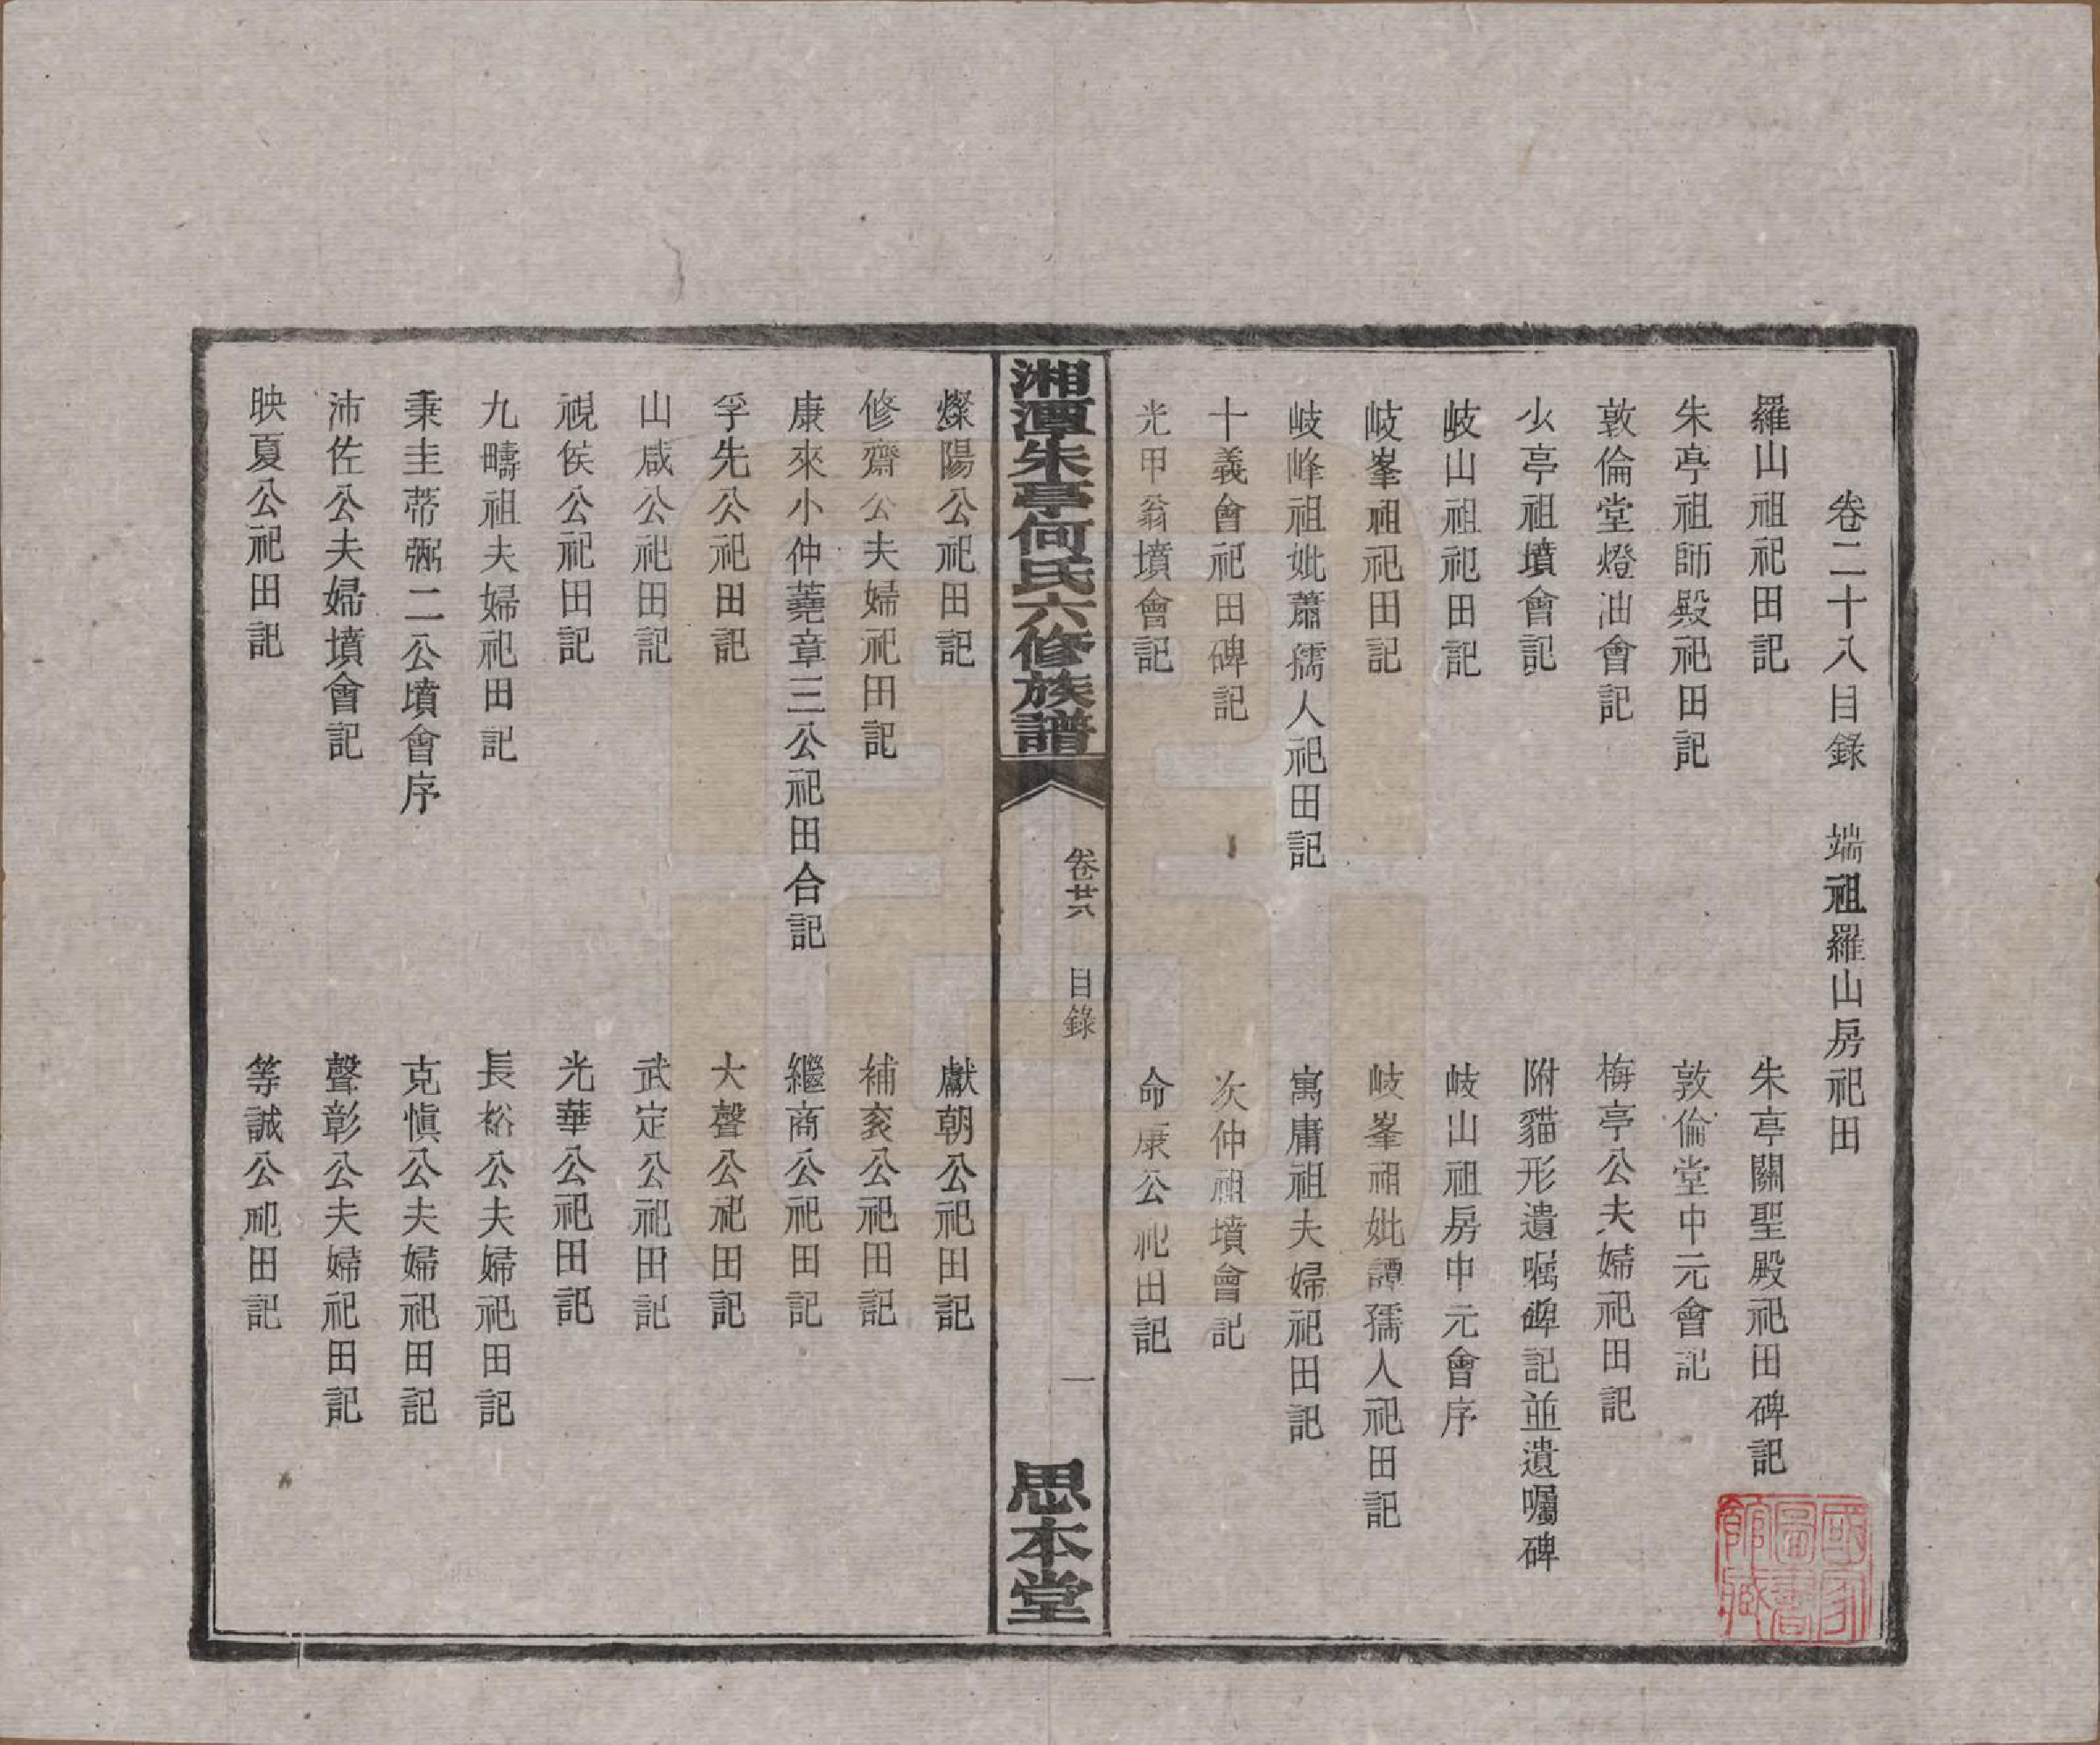 卷二十八目錄　端祖羅山房祀田
羅山祖祀田記　朱亭關聖殿祀田碑記
朱亭祖師殿祀田記　敦倫堂中元會記
敦倫堂燈油會記　梅亭公夫婦祀田記
少亭祖墳會記　附貓形遺嘱碑記並遺囑碑
岐山祖祀田記　岐山祖房中元會序
岐峯祖祀田記　岐峯祖妣譚孺人祀田記
岐峰祖妣蕭孺人祀田記　寓庸祖夫婦祀田記
十義會祀田碑記　次仲祖墳會記
光甲翁墳會記　命康公祀田記
湘潭朱亭何氏六修族譜　卷廿八　目錄　一　思本堂
燦陽公祀田記　獻朝公祀田記
修齋公夫婦祀田記　補亥公祀田記
康來小仲蕘章三公祀田合記　繼商公祀田記
孚先公祀田記　大聲公祀田記
山咸公祀田記　武定公祀田記
視侯公祀田記　光華公祀田記
九疇祖夫婦祀田記　長裕公夫婦祀田記
秉圭蒂弼二公墳會序　克愼公夫婦祀田記
沛佐公夫婦墳會記　聲彰公夫婦祀田記
映夏公祀田記　等誠公祀田記
國家圖書館藏